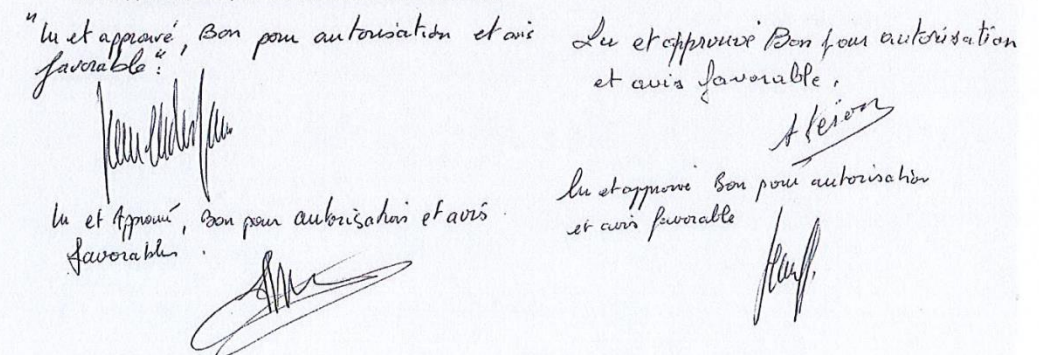 "lu et approuvé, Bon pour autorisation et avis
favorable".
Lu et approuvé Bon pour autorisation
et avis favorable.
lu et Approuvé, Bon pour autorisation et avis
favorables.
lu et approuvé Bon pour autorisation
et avis favorable